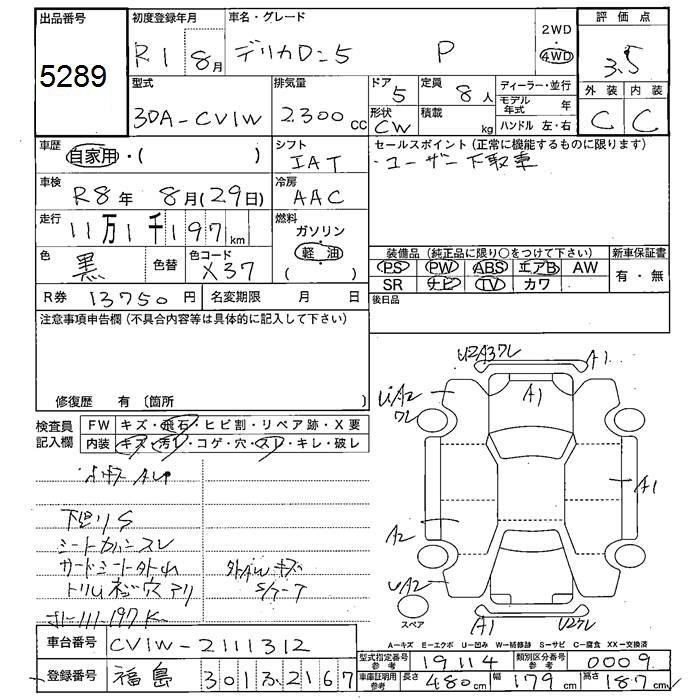 出品番号
5289
初度登録年月
R1 8月
車名・グレード
デリカD:5 P
2WD
4WD
評価点
3.5
外装 内装
C C
型式
3DA-CV1W
排気量
2300 CC
ドア 5
形状 CW
定員 8人
積載 kg
ディーラー・並行
モデル年式 年
ハンドル 左・右
車歴
自家用・( )
シフト
IAT
セールスポイント (正常に機能するものに限ります)
・ユーザー下取車
車検
R8年 8月(29日)
冷房
AAC
走行
11万1千197km
燃料
ガソリン
軽油
( )
色
黒
色替
色コード
X37
装備品 (純正品に限り○をつけて下さい)
PS PW ABS エアB AW
SR ナビ TV カワ
新車保証書
有・無
R券 13750円
名変期限 月 日
後日品
注意事項申告欄 (不具合内容等は具体的に記入して下さい)
修復歴 有 〔箇所 〕
検査員記入欄
FW キズ・飛石・ヒビ割・リペア跡・X要
内装 キズ・汚レ・コゲ・穴・スレ・キレ・破レ
下廻りS
シートカバースレ
トリムネジ穴アリ
外AWキズ
オー111,197K
U2A3ワレ
A1
A1
UA2
ワレ
A1
A2
UA2
A1
U2ワレ
スペア
A-キズ E-エクボ U-凹み W-補修跡 S-サビ C-腐食 XX-交換済
車台番号 CV1W-2111312
登録番号 福島 301ふ2167
型式指定番号 参考 19114
類別区分番号 参考 0009
車庫証明用 参考 長さ 480cm 幅 179cm 高さ 187cm